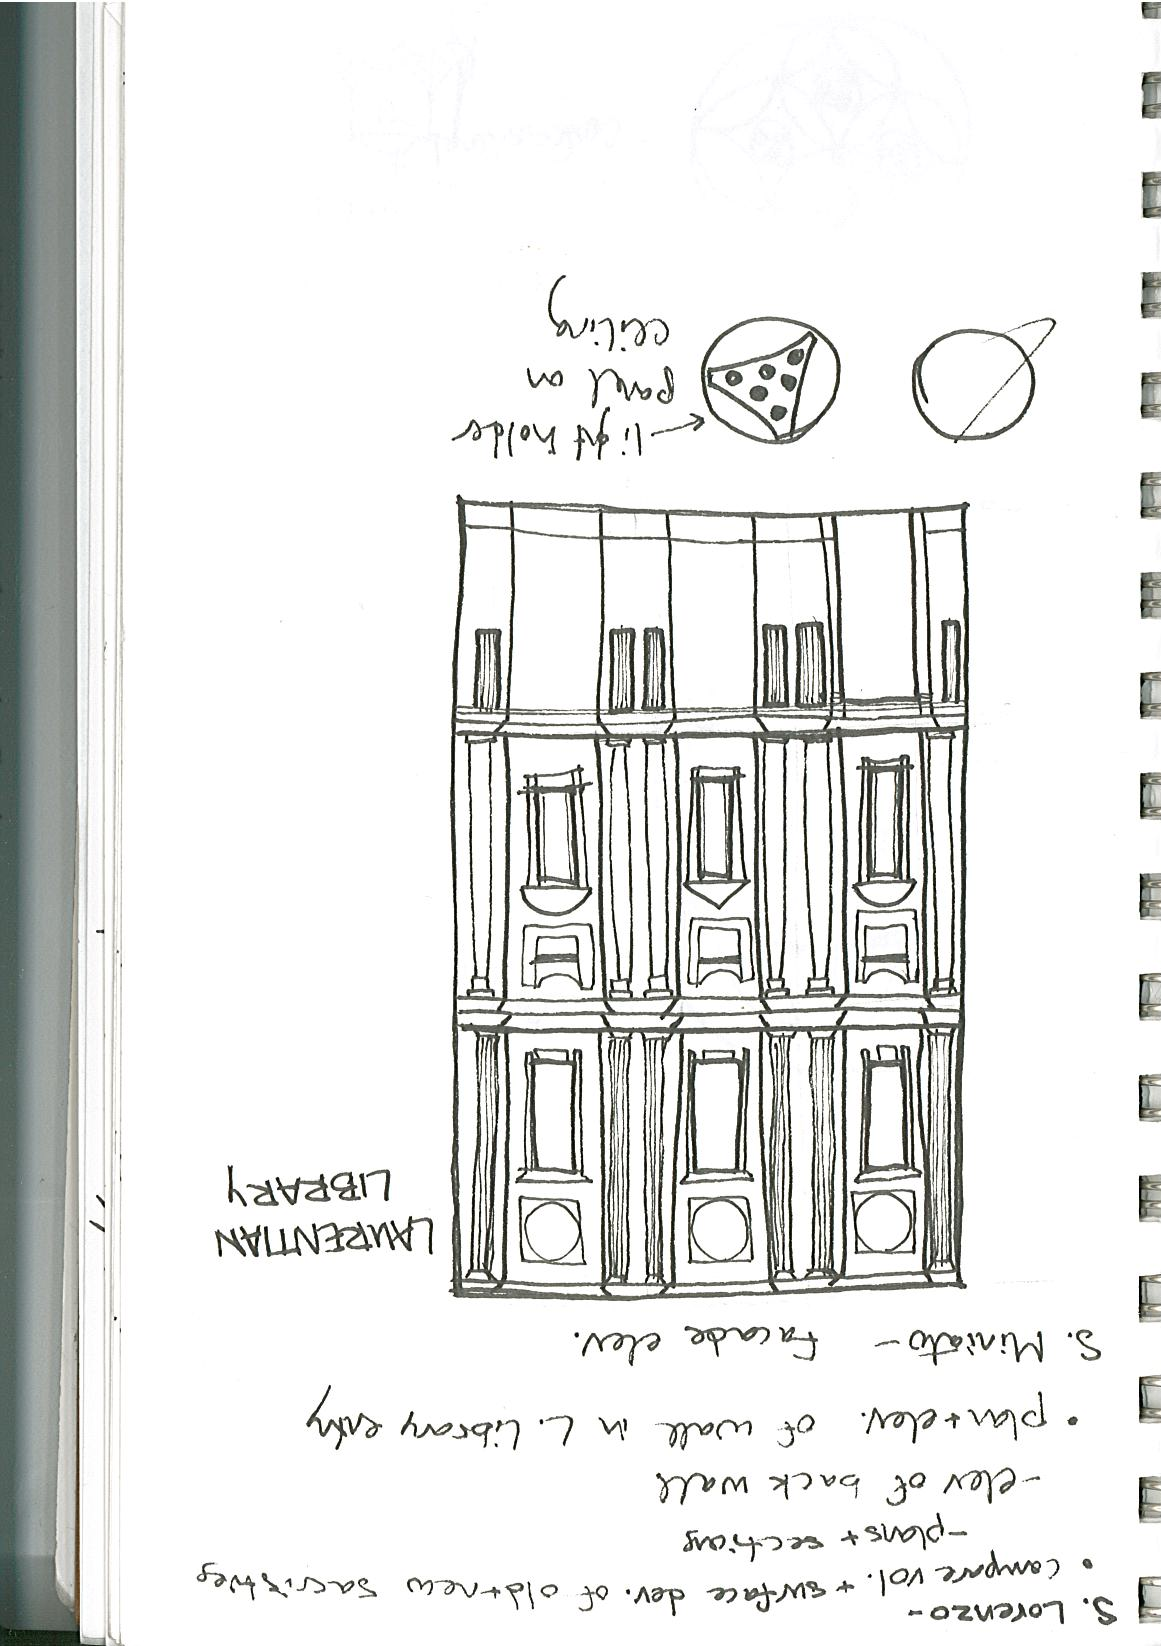 S. Lorenzo-
• compare vol. + surface dev. of old+new sacristies
-plans + sections
-elev of back wall
• plan+elev. of wall in L. Library entry
S. Miniato - facade elev.
LAURENTIAN
LIBRARY
light holder
panel on
ceiling